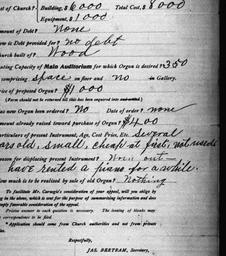 st of Church? Building, $6000 Total Cost, $8000
Equipment, $1000
amount of Debt? None
is Debt provided for? no debt
Church built of? Wood
Seating Capacity of Main Auditorium for which Organ is desired? 350
comprising space on floor and no in Gallery.
Price of Organ desired? $1000
(Form should not be returned till this has been inquired into
Has new Organ been ordered? No Date of order? none
Amount already raised toward purchase of Organ? $400
Particulars of present Instrument, Age, Cost Price, Etc. Several
years old, small, cheap at first, not used
Reason for displacing present Instrument? Worn out—
have rented a piano for a while.
How much is to be realized by sale of old Organ? Nothing
To facilitate Mr. Carnegie's consideration of your appeal, will you oblige by
filling in the above, which is sent for the purpose of summarizing information and does
not imply favorable consideration of the appeal.
Precise answer to each question is necessary. The issuing of blanks may
correspondence to be filed.
Application should come from Church authorities and not from present
Respectfully,
JAS. BERTRAM, Secretary,